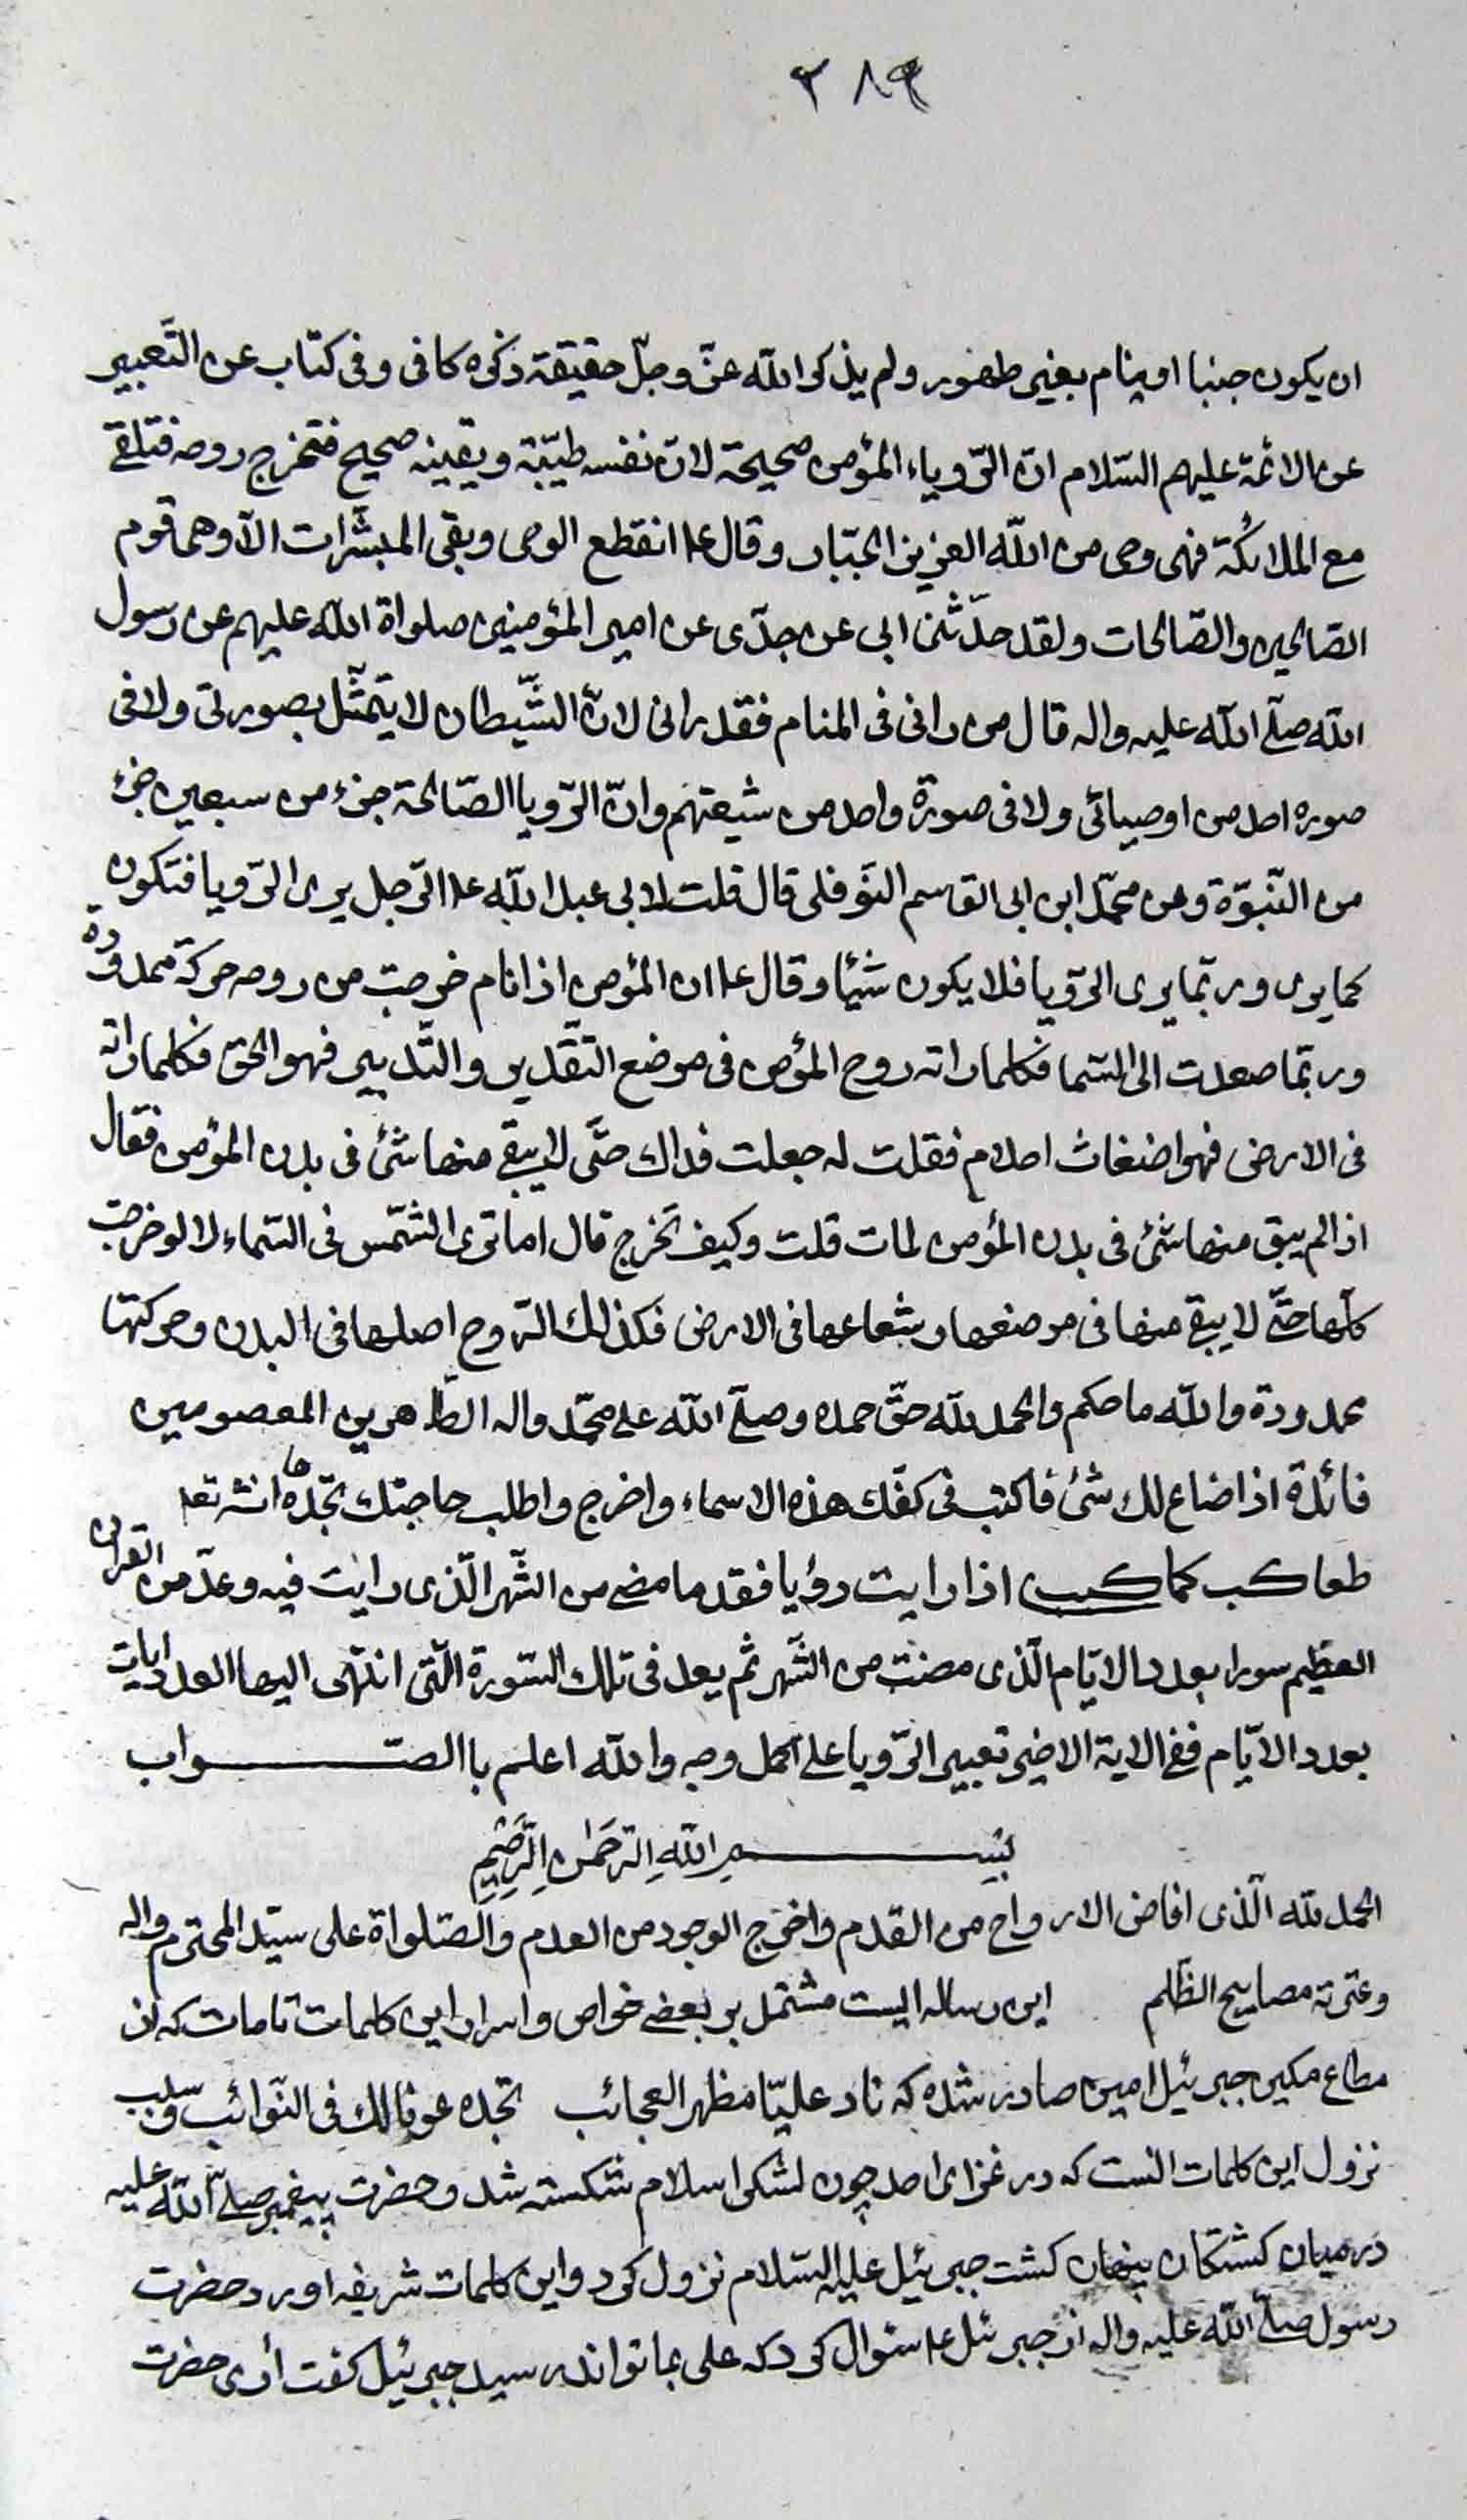 ٢٨٩
ان يكون جنبا او ينام بغير طهور ولم يذكر الله عزّ وجلّ حقيقة ذكره كافى وفى كتاب عن التَّعبير
عن الائمة عليهم السّلام انّ الرّوياء المؤمن صحيحة لانّ نفسه طيّبة ويقينه صحيح فتخرج روحه فتلقے
مع الملائكة فهى وحى من الله العزيز الجبّار وقال ع انقطع الوحى وبقى المبشّرات الآ وهما قوم
الصّالحين والصّالحات ولقد حدّثنى ابى عن جدّى عن امير المؤمنين صلواة الله عليهم عن رسول
الله صلّے الله عليه واله قال من رانى فى المنام فقد رانى لانّ الشّيطان لا يتمثّل بصورتى ولا فى
صورة احد من اوصيائى ولا فى صورة واحد من شيعتهم وانّ الرّويا الصّالحة جزء من سبعين جزء
من النّبوّة وعن محمّد ابن ابى القاسم النّوفلى قال قلت لابى عبد الله ع الرّجل يرى الرّويا فتكون
كما يرى وربّما يرى الرّويا فلا يكون شيئا وقال ع ان المؤمن اذا نام خرجت من روحه حركة ممدودة
وربّما صعدت الى السّما فكلما راته روح المؤمن فى موضع التّقدير والتّدبير فهو الحق فكلما راته
فى الارض فهو اضغاث احلام فقلت له جعلت فداك حتّى لا يبقے منها شئ فى بدن المؤمن فقال
اذا لم يبق منها شئ فى بدن المؤمن لمات قلت وكيف تخرج قال اما ترى الشّمس فى السّماء لا لو خرجت
كلّها حتّے لا يبقے منها فى موضعها وشعاعها فى الارض فكذلك الرّوح اصلها فى البدن وحركتها
محدودة والله ما حكم والحمد لله حقّ حمده وصلّے الله علے محمّد واله الطّاهرين المعصومين
فائدة اذا ضاع لك شئ فاكتب فى كفّك هذه الاسماء واخرج واطلب حاجتك تجدها انشه تعه
طعاكسب كماكسب اذا رايت رؤيا فقد ما مضے من الشّهر الّذى رايت فيه وعدّ من القران
العظيم سورا بعدد الايّام الّذى مضت من الشّهر ثم يعد فى تلك السّورة الّتى انتهى اليها العدد ايات
بعدد الايّام ففى الاية الاخير تعبير الرّويا على اكمل وجه والله اعلم باالصّواب
بسم الله الرّحمن الرّحيم
الحمد لله الّذى افاض الارواح من القدم واخرج الوجود من العدم والصّلواة على سيّد المحترم واله
وعترته مصابيح الظّلم اين رساله ايست مشتمل بر بعضے خواص واسرار اين كلمات تامات كه از
مطاع مكين جبرئيل امين صادر شده كه ناد عليّا مظهر العجائب تجده عونا لك فى النّوائب وسبب
نزول اين كلمات انست كه در غزاى احد چون لشكر اسلام شكسته شد وحضرت پيغمبر صلّے الله عليه
در ميان كشتكان پنهان كشت جبرئيل عليه السّلام نزول كرد واين كلمات شريفه اورد حضرت
رسول صلّے الله عليه واله از جبرئيل ع سئوال كرد كه على بما تواند رسيد جبرئيل كفت ارى حضرت